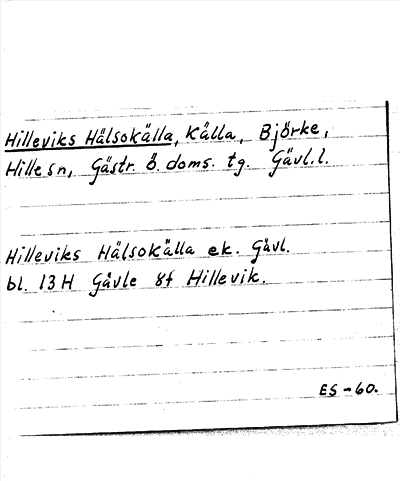 Hilleviks Hälsokälla, Källa, Björke,
Hille sn, Gästr. ö. doms. tg. Gävl.l.
Hilleviks Hälsokälla ek. Gävl.
bl. 13H Gävle 8f Hillevik.
ES-60.